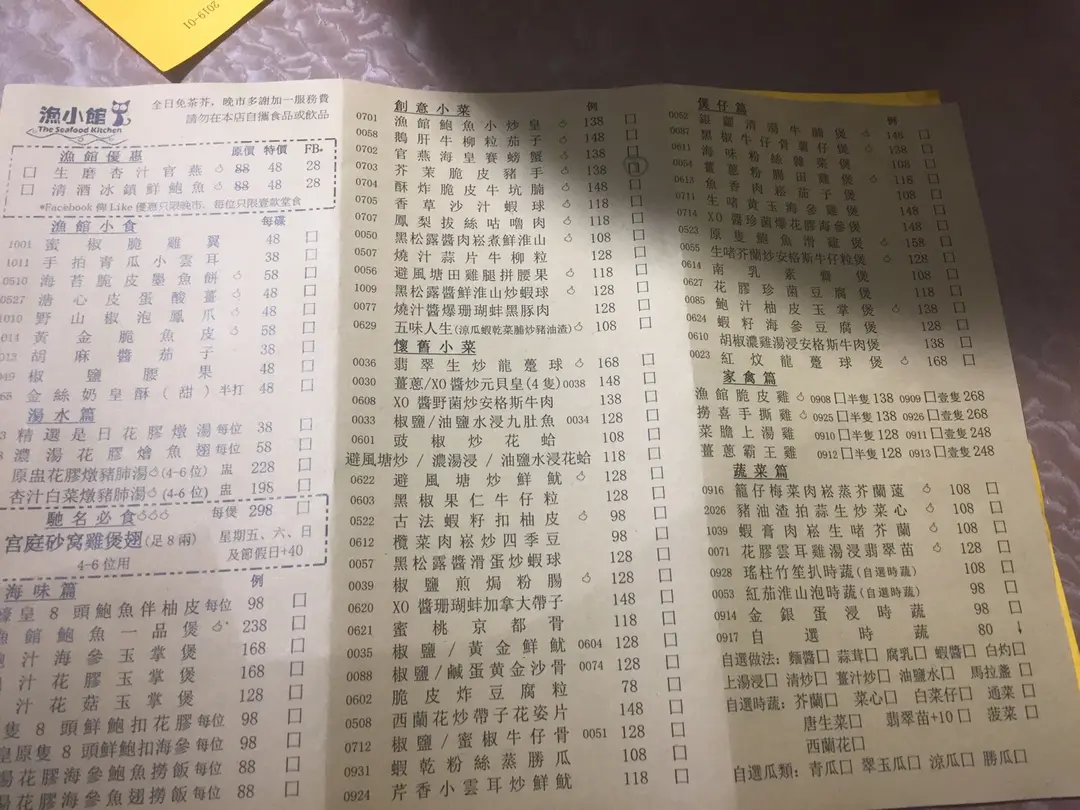 2019-01
漁小館
The Seafood Kitchen
全日免茶芥，晚市多謝加一服務費
請勿在本店自攜食品或飲品
漁館優惠 原價 特價 FB*
口 生磨杏汁官燕 88 48 28
口 清酒冰鎮鮮鮑魚 88 48 28
*Facebook 俾 Like 優惠只限晚市、每位只限壹款堂食
漁館小食 每碟
1001 蜜椒脆雞翼 48 口
1011 手拍青瓜小雲耳 38 口
0510 海苔脆皮墨魚餅 58 口
0527 溏心皮蛋酸薑 48 口
1010 野山椒泡鳳爪 48 口
黃金脆魚皮 58 口
胡麻醬茄子 38 口
椒鹽腰果 48 口
金絲奶皇酥(甜) 半打 48 口
湯水篇
精選是日花膠燉湯 每位 38 口
濃湯花膠燴魚翅 每位 58 口
原盅花膠燉豬肺湯 (4-6位) 盅 228 口
杏汁白菜燉豬肺湯 (4-6位) 盅 198 口
馳名必食 每煲 298 口
宮庭砂窩雞煲翅(足8兩) 星期五、六、日
4-6位用 及節假日+40
海味篇 例
皇8頭鮑魚伴柚皮 每位 98 口
漁館鮑魚一品煲 238 口
汁海參玉掌煲 168 口
汁花膠玉掌煲 168 口
汁花菇玉掌煲 128 口
隻8頭鮮鮑扣花膠 每位 98 口
皇原隻8頭鮮鮑扣海參 每位 98 口
湯花膠海參鮑魚撈飯 每位 88 口
湯花膠海參鮑魚翅撈飯 每位 88 口
創意小菜 例
0701 漁館鮑魚小炒皇 138 口
0058 鵝肝牛柳粒茄子 148 口
0702 官燕海皇賽螃蟹 138 口
0703 芥茉脆皮豬手 138 口
0704 酥炸脆皮牛坑腩 148 口
0705 香草沙汁蝦球 118 口
0707 鳳梨拔絲咕嚕肉 118 口
0050 黑松露醬肉崧煮鮮淮山 108 口
0507 燒汁蒜片牛柳粒 128 口
0056 避風塘田雞腿拼腰果 118 口
1009 黑松露醬鮮淮山炒蝦球 128 口
0077 燒汁醬爆珊瑚蚌黑豚肉 128 口
0629 五味人生(涼瓜蝦乾菜脯炒豬油渣) 108 口
懷舊小菜
0036 翡翠生炒龍躉球 168 口
0030 薑蔥/XO醬炒元貝皇(4隻) 0038 148 口
0608 XO醬野菌炒安格斯牛肉 138 口
0033 椒鹽/油鹽水浸九肚魚 0034 128 口
0601 豉椒炒花蛤 108 口
避風塘炒/濃湯浸/油鹽水浸花蛤 118 口
0622 避風塘炒鮮魷 118 口
0603 黑椒果仁牛仔粒 128 口
0522 古法蝦籽扣柚皮 98 口
0612 欖菜肉崧炒四季豆 98 口
0057 黑松露醬滑蛋炒蝦球 128 口
0039 椒鹽煎焗粉腸 128 口
0620 XO醬珊瑚蚌加拿大帶子 148 口
0621 蜜桃京都骨 118 口
0035 椒鹽/黃金鮮魷 0604 128 口
0088 椒鹽/鹹蛋黃金沙骨 0074 128 口
0602 脆皮炸豆腐粒 78 口
0508 西蘭花炒帶子花姿片 148 口
0712 椒鹽/蜜椒牛仔骨 0051 128 口
0931 蝦乾粉絲蒸勝瓜 108 口
0924 芹香小雲耳炒鮮魷 118 口
煲仔篇 例
0052 銀蘿清湯牛腩煲 148 口
0087 黑椒牛仔骨薯仔煲 138 口
0611 海味粉絲雜菜煲 口
0054 薑蔥粉腸田雞煲 118 口
0613 魚香肉崧茄子煲 108 口
0711 生啫黃玉海參雞煲 148 口
0714 XO醬珍菌爆花膠海參煲 148 口
0523 原隻鮑魚滑雞煲 158 口
0055 生啫芥蘭炒安格斯牛仔粒煲 128 口
0614 南乳素齋煲 108 口
0627 花膠珍菌豆腐煲 118 口
0085 鮑汁柚皮玉掌煲 138 口
0624 蝦籽海參豆腐煲 128 口
0610 胡椒濃雞湯浸安格斯牛肉煲 138 口
0023 紅炆龍躉球煲 168 口
家禽篇
漁館脆皮雞 0908 口半隻 138 0909 口壹隻 268
撈喜手撕雞 0925 口半隻 138 0926 口壹隻 268
菜膽上湯雞 0910 口半隻 128 0911 口壹隻 248
薑蔥霸王雞 0912 口半隻 128 0913 口壹隻 248
蔬菜篇
0916 籠仔梅菜肉崧蒸芥蘭薳 108 口
2026 豬油渣拍蒜生炒菜心 108 口
1039 蝦膏肉崧生啫芥蘭 108 口
0071 花膠雲耳雞湯浸翡翠苗 128 口
0928 瑤柱竹笙扒時蔬(自選時蔬) 108 口
0053 紅茄淮山泡時蔬(自選時蔬) 98 口
0914 金銀蛋浸時蔬 98 口
0917 自選時蔬 80 ↓
自選做法：麵醬口 蒜茸口 腐乳口 蝦醬口 白灼口
上湯浸口 清炒口 薑汁炒口 油鹽水口 馬拉盞口
自選時蔬：芥蘭口 菜心口 白菜仔口 通菜口
唐生菜口 翡翠苗+10口 菠菜口
西蘭花口
自選瓜類：青瓜口 翠玉瓜口 涼瓜口 勝瓜口